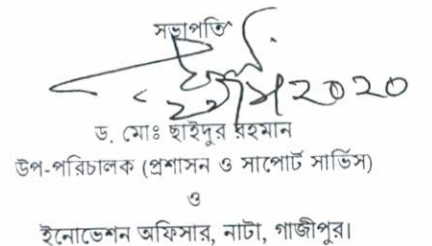 সভাপতি
২০২০
ড. মোঃ ছাইদুর রহমান
উপ-পরিচালক (প্রশাসন ও সাপোর্ট সার্ভিস)
ও
ইনোভেশন অফিসার, নাটা, গাজীপুর।